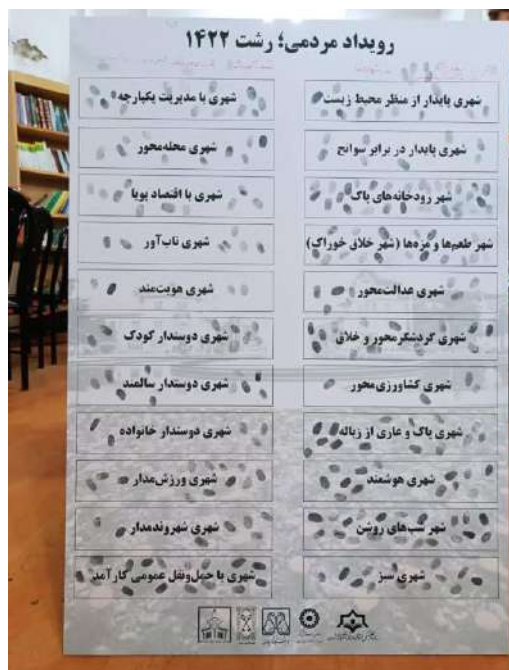 رویداد مردمی؛ رشت ۱۴۲۲
شهری پایدار از منظر محیط زیست
شهری پایدار در برابر سوانح
شهر رودخانه‌های پاک
شهر طعم‌ها و مزه‌ها (شهر خلاق خوراک)
شهری عدالت‌محور
شهری گردشگرمحور و خلاق
شهری کشاورزی‌محور
شهری پاک و عاری از زباله
شهری هوشمند
شهر شب‌های روشن
شهری سبز
شهری با مدیریت یکپارچه
شهری محله‌محور
شهری با اقتصاد پویا
شهری تاب‌آور
شهری هویت‌مند
شهری دوستدار کودک
شهری دوستدار سالمند
شهری دوستدار خانواده
شهری ورزش‌مدار
شهری شهروندمدار
شهری با حمل‌ونقل عمومی کارآمد